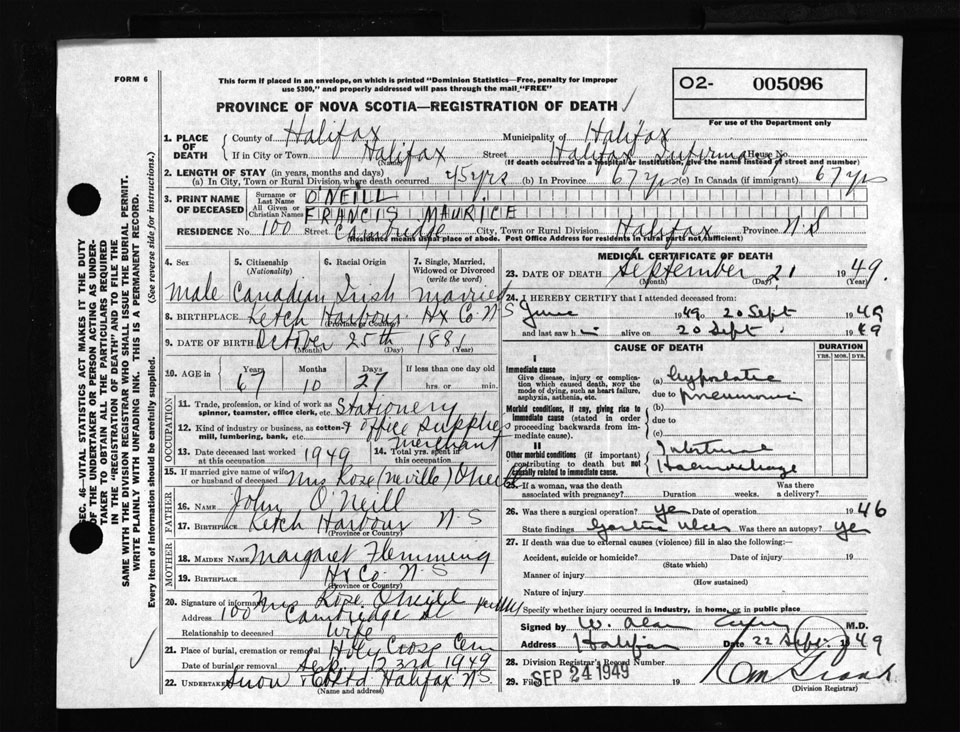 FORM 6
This form if placed in an envelope, on which is printed "Dominion Statistics—Free, penalty for improper
use $300," and properly addressed will pass through the mail "FREE"
O2- 005096
For use of the Department only
PROVINCE OF NOVA SCOTIA—REGISTRATION OF DEATH
1. PLACE OF DEATH
County of Halifax Municipality of Halifax
If in City or Town Halifax Street Halifax Infirmary House No.
(Name) (If death occurred in a hospital or institution, give the name instead of street and number)
2. LENGTH OF STAY (in years, months and days)
(a) In City, Town or Rural Division where death occurred 45 yrs (b) In Province 67 yrs (c) In Canada (if immigrant) 67 yrs
3. PRINT NAME OF DECEASED
Surname or Last Name O'NEILL
All Given or Christian Names FRANCIS MAURICE
RESIDENCE No. 100 Street Cambridge City, Town or Rural Division Halifax Province N.S
(Residence means usual place of abode. Post Office Address for residents in rural parts not sufficient)
4. Sex 5. Citizenship (Nationality) 6. Racial Origin 7. Single, Married, Widowed or Divorced (write the word)
Male Canadian Irish Married
8. BIRTHPLACE Ketch Harbour Hx Co. N-S
(Province or Country)
9. DATE OF BIRTH October 25th 1881
(Month) (Day) (Year)
10. AGE in Years Months Days If less than one day old
67 10 27 hrs. or min.
OCCUPATION
11. Trade, profession or kind of work as spinner, teamster, office clerk, etc. Stationery
12. Kind of industry or business, as cotton-mill, lumbering, bank, etc. & Office Supplies
Merchant
13. Date deceased last worked at this occupation 1949 14. Total yrs. spent in this occupation
15. If married give name of wife or husband of deceased Mrs Rose (Neville) O'Neill
FATHER
16. Name John O'Neill
17. Birthplace Ketch Harbour N-S
(Province or Country)
MOTHER
18. Maiden Name Margaret Flemming
19. Birthplace Hx Co. N-S
(Province or Country)
20. Signature of informant Mrs Rose O'Neill
Address 100 Cambridge St
Relationship to deceased Wife
21. Place of burial, cremation or removal Holy Cross Cem
Date of burial or removal Sept. 23rd 1949
22. Undertaker Snow & Co Ltd Halifax N.S.
(Name and address)
MEDICAL CERTIFICATE OF DEATH
23. DATE OF DEATH September 21 1949.
(Month) (Day) (Year)
24. I HEREBY CERTIFY that I attended deceased from:
June 1949 to 20 Sept 1949
and last saw h im alive on 20 Sept. 1949
CAUSE OF DEATH DURATION
YRS. MOS. DYS.
I
Immediate cause
Give disease, injury or complication which caused death, NOT the mode of dying, such as heart failure, asphyxia, asthenia, etc.
(a) Hypostatic
due to Pneumonia
Morbid conditions, if any, giving rise to immediate cause (stated in order proceeding backwards from immediate cause).
(b)
due to
(c)
II
Other morbid conditions (if important) contributing to death but not related to immediate cause.
Intestinal
Haemorrhage
25. If a woman, was the death associated with pregnancy? Duration weeks. Was there a delivery?
26. Was there a surgical operation? yes Date of operation 1946
State findings Gastric Ulcer Was there an autopsy? yes
27. If death was due to external causes (violence) fill in also the following:—
Accident, suicide or homicide? Date of injury 19
(State which)
Manner of injury
(How sustained)
Nature of injury
Specify whether injury occurred in industry, in home, or in public place
Signed by W. Alan M.D.
Address Halifax Date 22 Sept. 1949
28. Division Registrar's Record Number
29. Filed SEP 24 1949 19
(Division Registrar)
SEC. 46—VITAL STATISTICS ACT MAKES IT THE DUTY
OF THE UNDERTAKER OR PERSON ACTING AS UNDER-
TAKER TO OBTAIN ALL THE PARTICULARS REQUIRED
IN THE "REGISTRATION OF DEATH" AND TO FILE THE
SAME WITH THE DIVISION REGISTRAR WHO SHALL ISSUE THE BURIAL PERMIT.
WRITE PLAINLY WITH UNFADING INK. THIS IS A PERMANENT RECORD.
Every item of information should be carefully supplied. (See reverse side for instructions.)